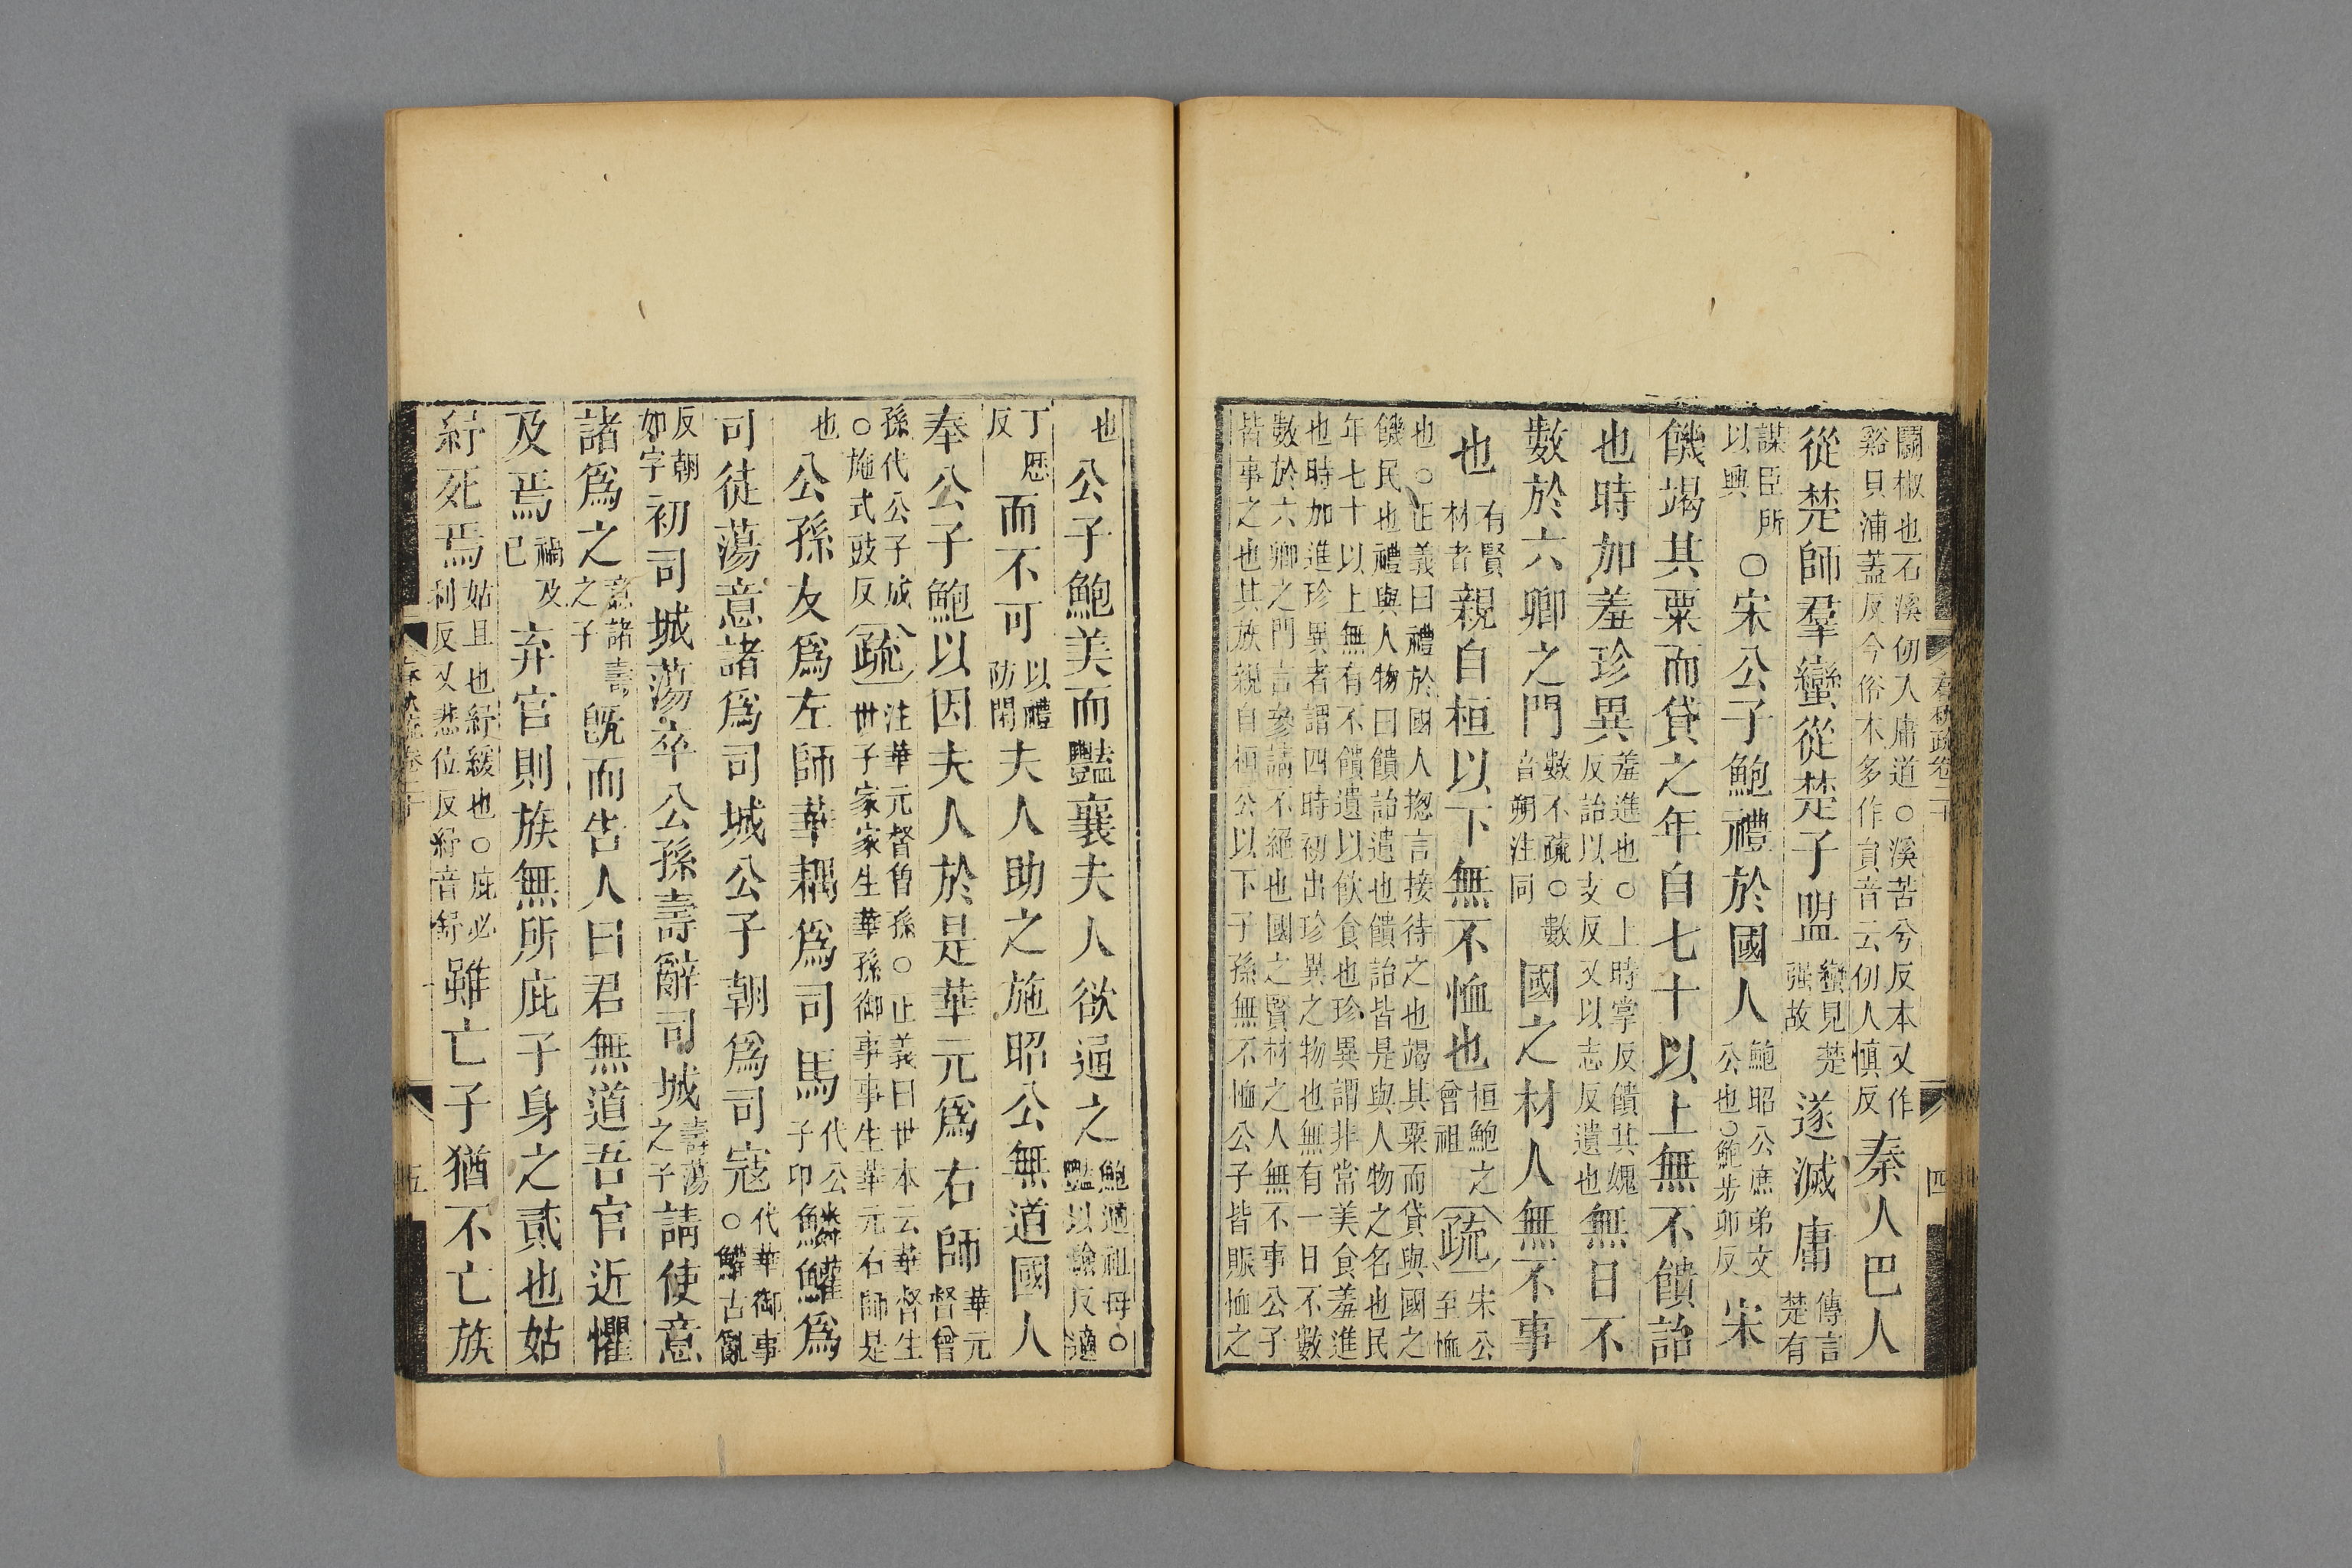 春秋疏卷二十
四
鬬椒也石溪仞入庸道○溪苦兮反本又作
谿貝浦蓋反今俗本多作貟音云仞人慎反秦人巴人
從楚師羣蠻從楚子盟蠻見楚強故遂滅庸傳言楚有
謀臣所以興○宋公子鮑禮於國人鮑昭公庶弟文公也○鮑步卯反宋
饑竭其粟而貸之年自七十以上無不饋詒
也時加羞珍異羞進也○上時掌反饋其媿反詒以支反又以志反遺也無日不
數於六卿之門數不疏○數音朔注同國之材人無不事
也有賢材者親自桓以下無不恤也桓鮑之曾祖疏宋公至恤
也○正義曰禮於國人揔言接待之也竭其粟而貸與國之
饑民也禮與人物曰饋詒遺也饋詒皆是與人物之名也民
年七十以上無有不饋遺以飲食也珍異謂非常美食羞進
也時加進珍異者謂四時初出珍異之物也無有一日不數
數於六卿之門言參請不絕也國之賢材之人無不事公子
皆事之也其族親自桓公以下子孫無不恤公子皆賑恤之
也公子鮑美而豔襄夫人欲通之鮑適祖母○豔以驗反適
丁歷反而不可以禮防閑夫人助之施昭公無道國人
奉公子鮑以因夫人於是華元爲右師華元督曾
孫代公子成○施式豉反疏注華元督曾孫○正義曰世本云華督生世子家家生華孫御事事生華元右師是
也公孫友爲左師華耦爲司馬代公子卬鱗鱹爲
司徒蕩意諸爲司城公子朝爲司寇代華御事○鱹古亂
反朝如字初司城蕩卒公孫壽辭司城壽蕩之子請使意
諸爲之意諸壽之子旣而告人曰君無道吾官近懼
及焉禍及己弃官則族無所庇子身之貳也姑
紓死焉姑且也紓緩也○庇必利反又悲位反紓音舒雖亡子猶不亡族
春秋疏卷二十
五